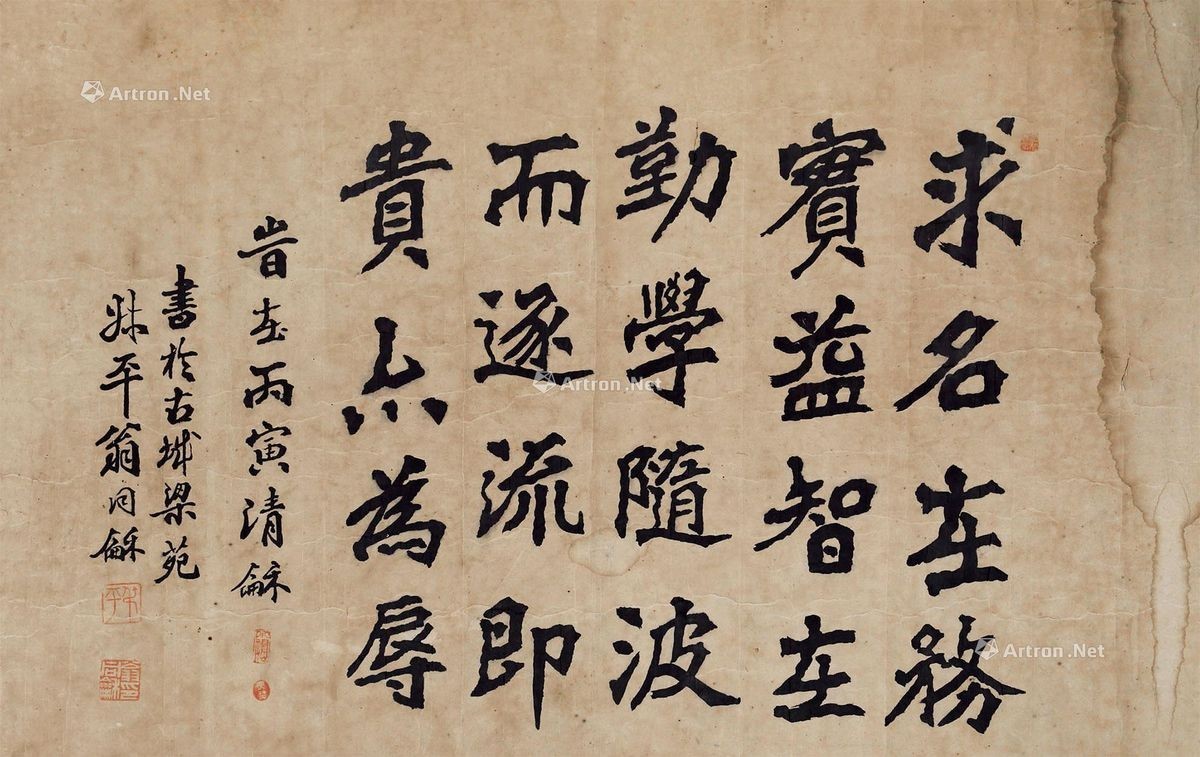 求名在務
實益智在
勤學隨波
而遂流即
貴亦為辱
旹在丙寅清龢
書於古城梁苑
姝平翁同龢
Artron.Net
Artron.Net
Artron.Net